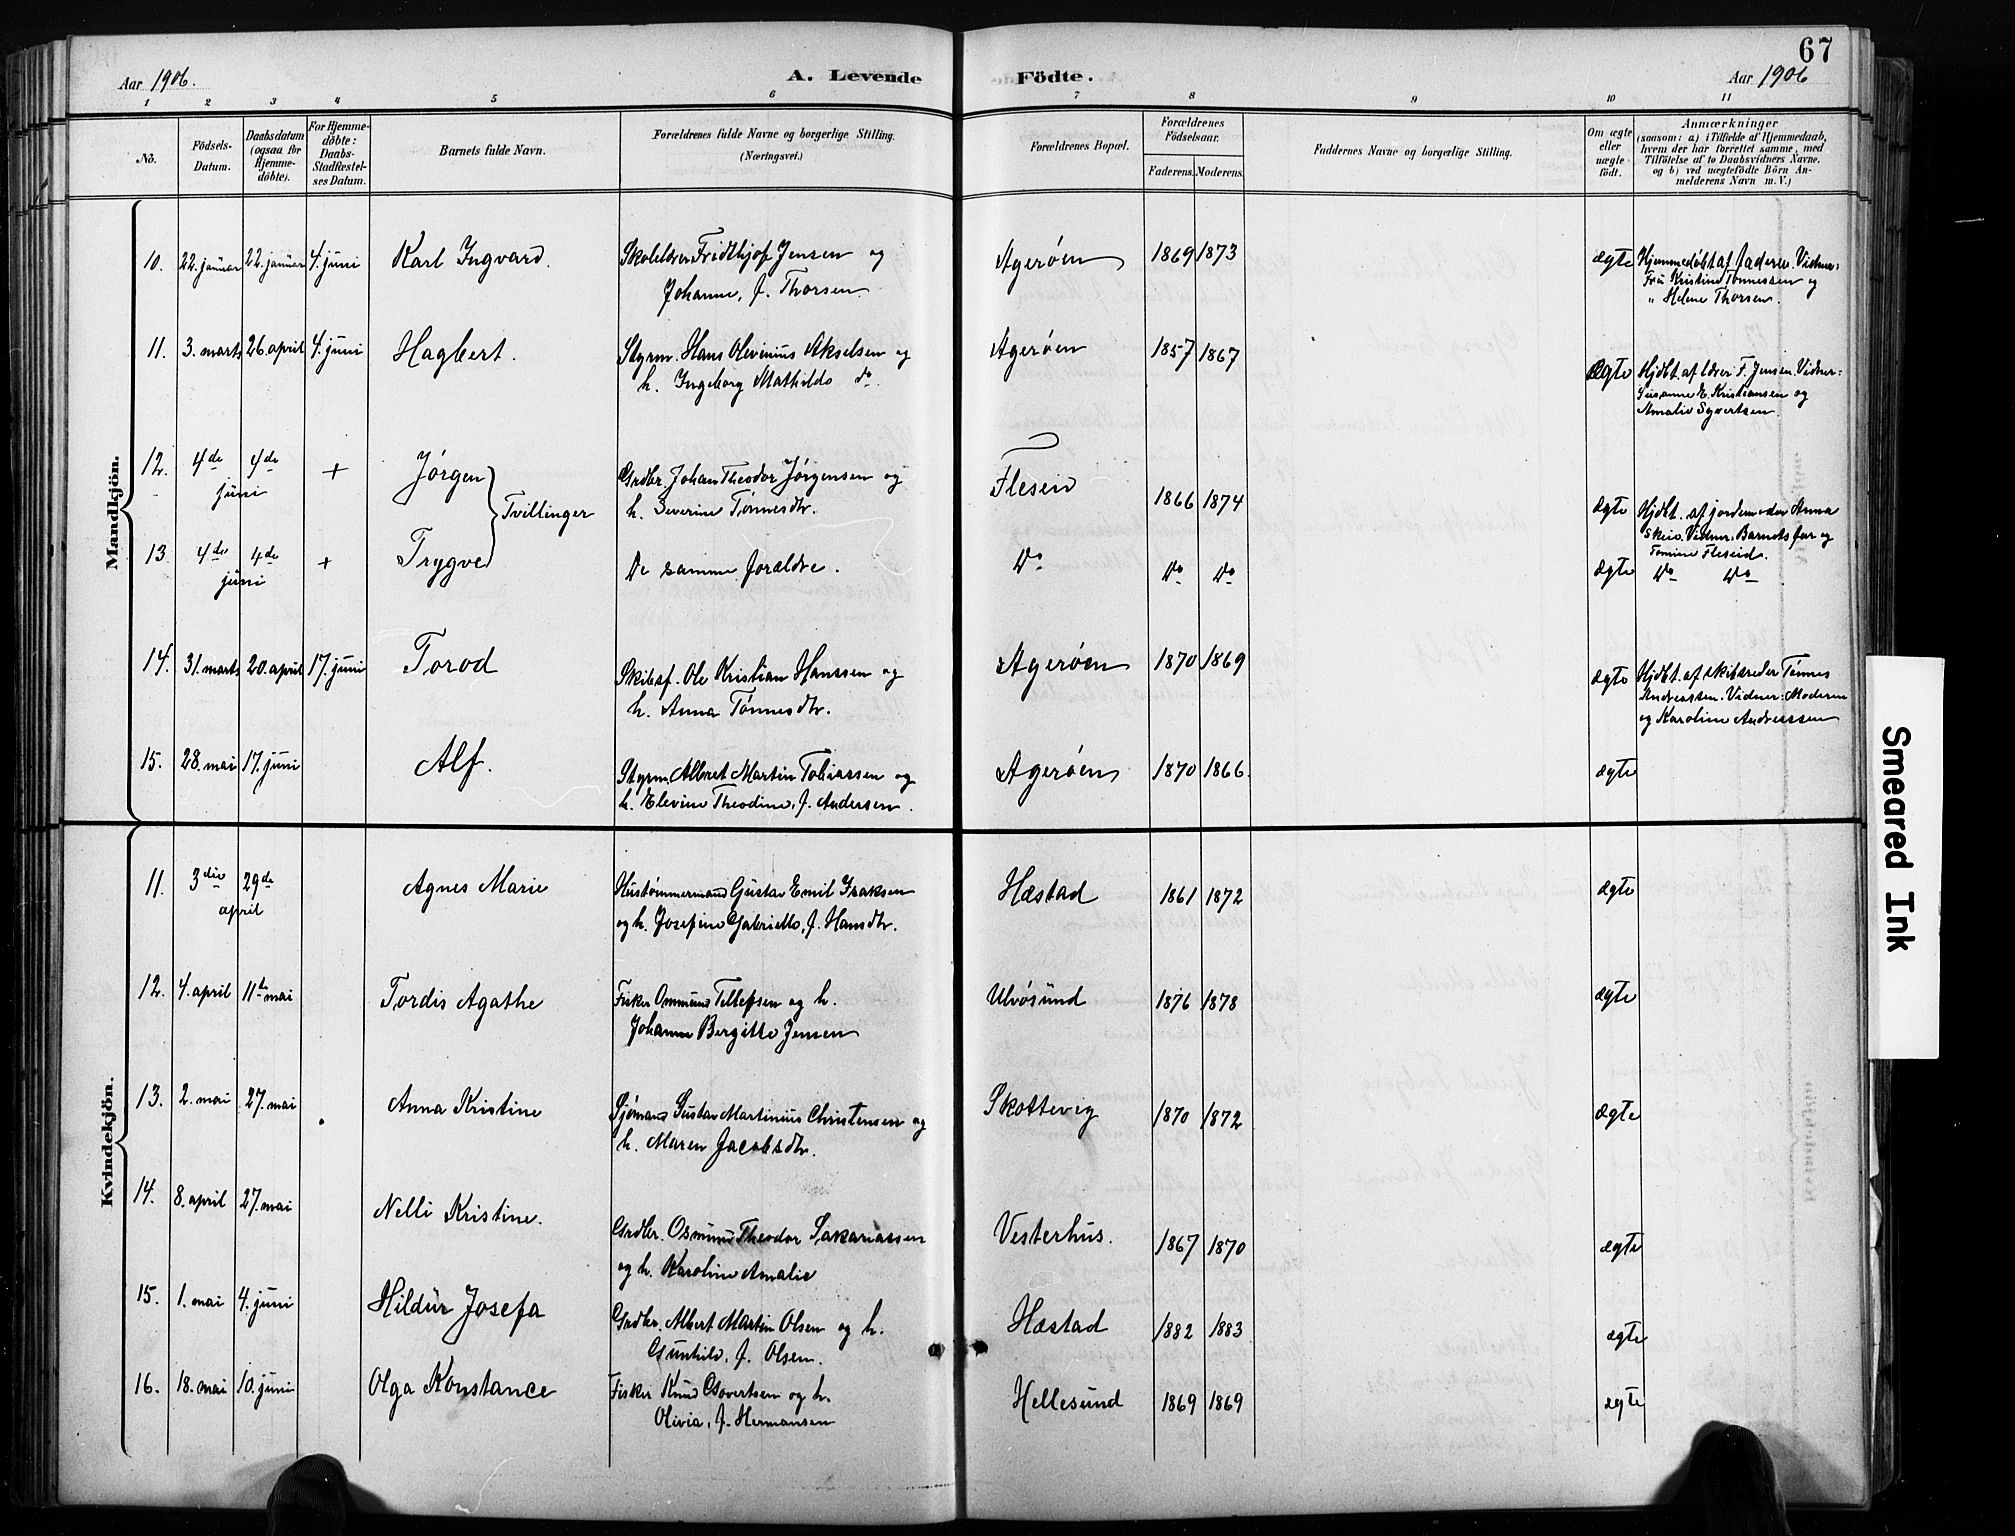 67
Aar 1906. A. Levende Födte. Aar 1906
1 2 3 4 5 6 7 8 9 10 11
No. Födsels-Datum. Daabsdatum (ogsaa for Hjemme-döbte). For Hjemme-döbte: Daabs-Stadfæstel-ses Datum. Barnets fulde Navn. Forældrenes fulde Navne og borgerlige Stilling. (Næringsvei.) Forældrenes Bopæl. Forældrenes Födselsaar. Faderens. Moderens. Faddernes Navne og borgerlige Stilling. Om ægte eller uægte født. Anmærkninger (saasom: a) i Tilfælde af Hjemmedaab, hvem der har forrettet samme, med Tilföielse af to Daabsvidners Navne. og b) ved uægtefödte Börn An-melderens Navn m. V.)
Mandkjön.
10. 22. januar 22. januar 4. juni Karl Ingvard. Skolelærer Fridthjof Jensen og Agerøen 1869 1873 ægte Hjemmedøbt af Faderen. Vidner:
Johanne, f. Thorsen. Fru Kristine Tønnessen og
" Helene Thorsen.
11. 3. marts 26. april 4. juni Hagbert. Styrm. Hans Olevinius Akselsen og Agerøen 1857 1867 ægte Hjdbt. af lærer F. Jensen. Vidner:
h. Ingeborg Mathilde do. Susanne E. Kristiansen og
Amalie Syvertsen.
12. 4de juni 4de + Jørgen Tvillinger Grdbr. Johan Theodor Jørgensen og Fleseid 1866 1874 ægte Hjdbt. af jordemoder Anna
h. Severine Tønnesdtr. Skeie. Vidner: Barnets far og
Tomine Fleseid.
13. 4de juni 4de + Trygve De samme forældre. Do Do Do ægte Do Do
14. 31. marts 20. april 17. juni Torod Skibsf. Ole Kristian Hanssen og Agerøen 1870 1869 ægte Hjdbt. af skibsreder Tønnes
h. Anna Tønnesdtr. Andreassen. Vidner: Moderen
og Karoline Andreassen
15. 28. mai 17. juni Alf. Styrm. Albret Martin Tobiassen og Agerøen 1870 1866. ægte
h. Elevine Theodine, f. Andersen.
Kvindekjön.
11. 3die april 29de Agnes Marie Hustømmermand Gustav Emil Isaksen Hæstad 1861 1872 ægte
og h. Josefine Gabrielle, f. Hansdtr.
12. 4. april 11te mai Tordis Agathe Fisker Ommund Tellefsen og h. Ulvøsund 1876 1878 ægte
Johanne Bergitte Jensen
13. 2. mai 27. mai Anna Kristine Sjømand Gustav Martinius Christensen og Skottevig 1870 1872 ægte
h. Maren Jacobsdtr.
14. 8. april 27. mai Nelli Kristine. Grdbr. Osmund Theodor Sakariassen Vesterhus. 1867 1870 ægte
og h. Karoline Amalie
15. 1. mai 4. juni Hildur Josefa Grdbr. Albert Martin Olsen og h. Hæstad 1882 1883 ægte
Gunhild, f. Olsen.
16. 18. mai 10. juni Olga Konstance Fisker Knud Govertsen og h. Hellesund 1869 1869 ægte
Olivia, f. Hermansen
Smeared Ink